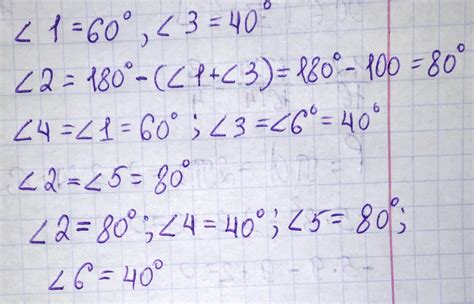 ∠1=60°, ∠3=40°
∠2=180°-(∠1+∠3)=180°-100=80°
∠4=∠1=60°; ∠3=∠6°=40°
∠2=∠5=80°
∠2=80°; ∠4=40°; ∠5=80°;
∠6=40°